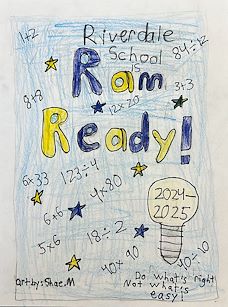 1+2
Riverdale
School
is
84÷12
Ram
8+8
3+3
12x20
Ready!
6x33
123÷4
4x80
2024-
2025
6+6
5x6
18÷2
40x90
Do what's right
Not what's
easy!
art by: Shae.M